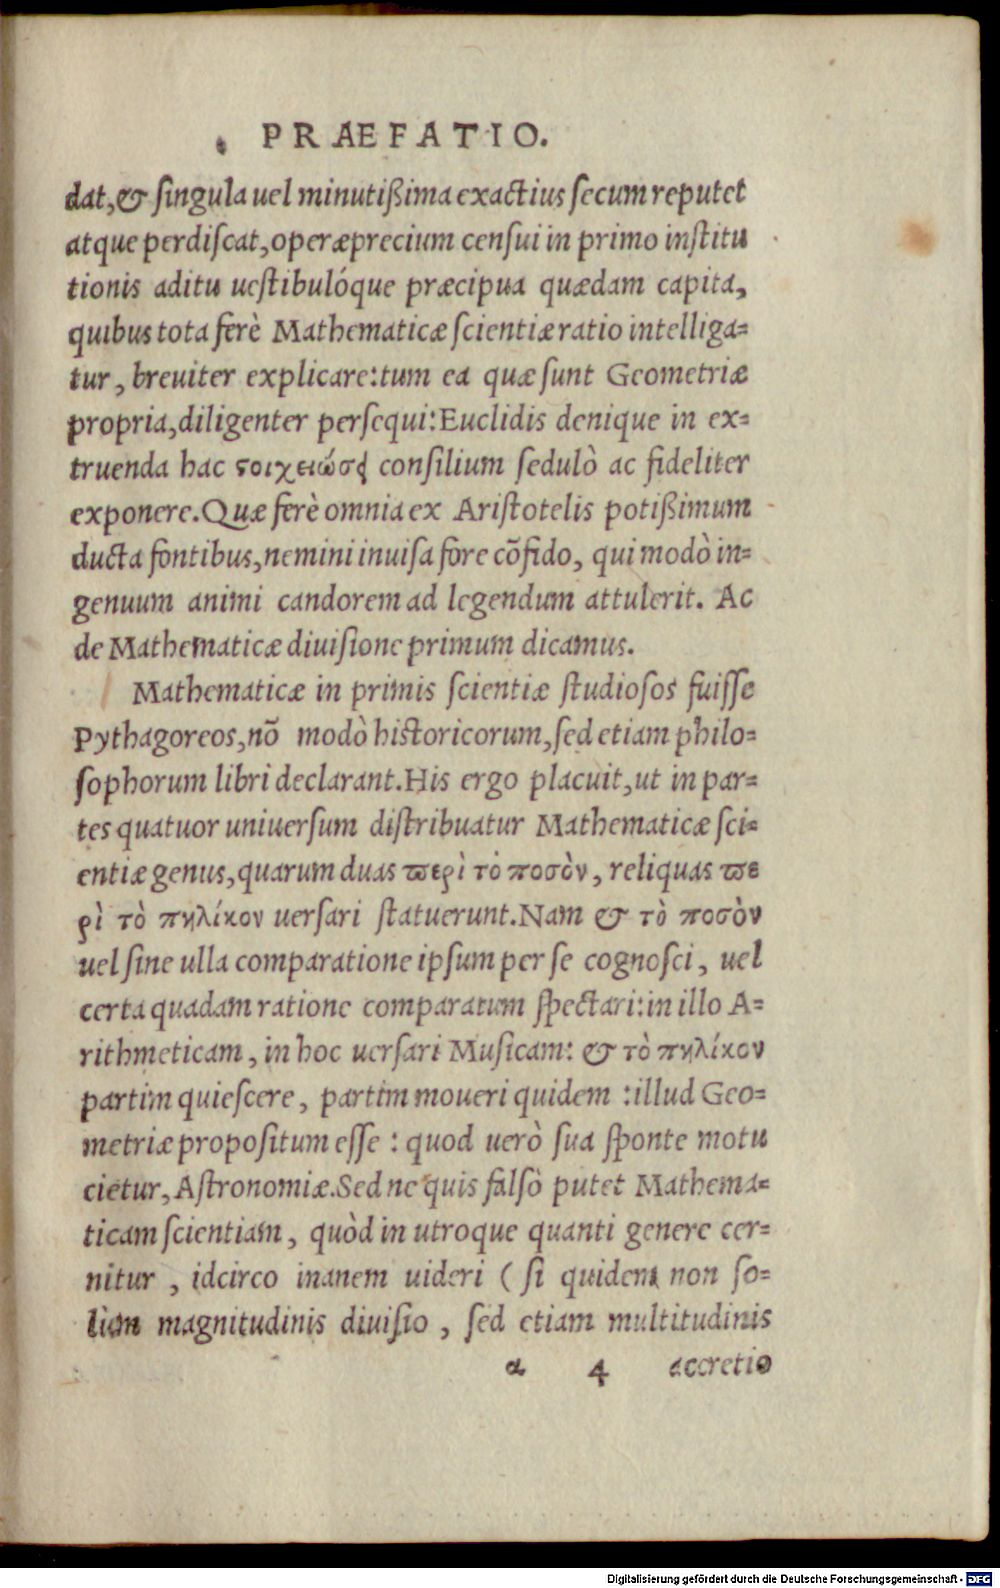 PRAEFATIO.
dat, & singula uel minutißima exactius secum reputet
atque perdiscat, operæprecium censui in primo institu
tionis aditu uestibulóque præcipua quædam capita,
quibus tota ferè Mathematicæ scientiæ ratio intelliga=
tur, breuiter explicare: tum ea quæ sunt Geometriæ
propria, diligenter persequi: Euclidis denique in ex=
truenda hac ϛοιχειώσφ consilium sedulò ac fideliter
exponere. Quæ ferè omnia ex Aristotelis potißimum
ducta fontibus, nemini inuisa fore cõfido, qui modò in=
genuum animi candorem ad legendum attulerit. Ac
de Mathematicæ diuisione primum dicamus.
Mathematicæ in primis scientiæ studiosos fuisse
Pythagoreos, nõ modò historicorum, sed etiam philo=
sophorum libri declarant. His ergo placuit, ut in par=
tes quatuor uniuersum distribuatur Mathematicæ sci=
entiæ genus, quarum duas ϖερὶ τὸ ποσὸν, reliquas ϖε
ρὶ τὸ πηλίκον uersari statuerunt. Nam & τὸ ποσὸν
uel sine ulla comparatione ipsum per se cognosci, uel
certa quadam ratione comparatum spectari: in illo A=
rithmeticam, in hoc uersari Musicam: & τὸ πηλίκον
partim quiescere, partim moueri quidem : illud Geo=
metriæ propositum esse : quod uerò sua sponte motu
cietur, Astronomiæ. Sed ne quis falsò putet Mathema=
ticam scientiam, quòd in utroque quanti genere cer=
nitur , idcirco inanem uideri ( si quidem non so=
lùm magnitudinis diuisio , sed etiam multitudinis
a 4 accretio
Digitalisierung gefördert durch die Deutsche Forschungsgemeinschaft - DFG